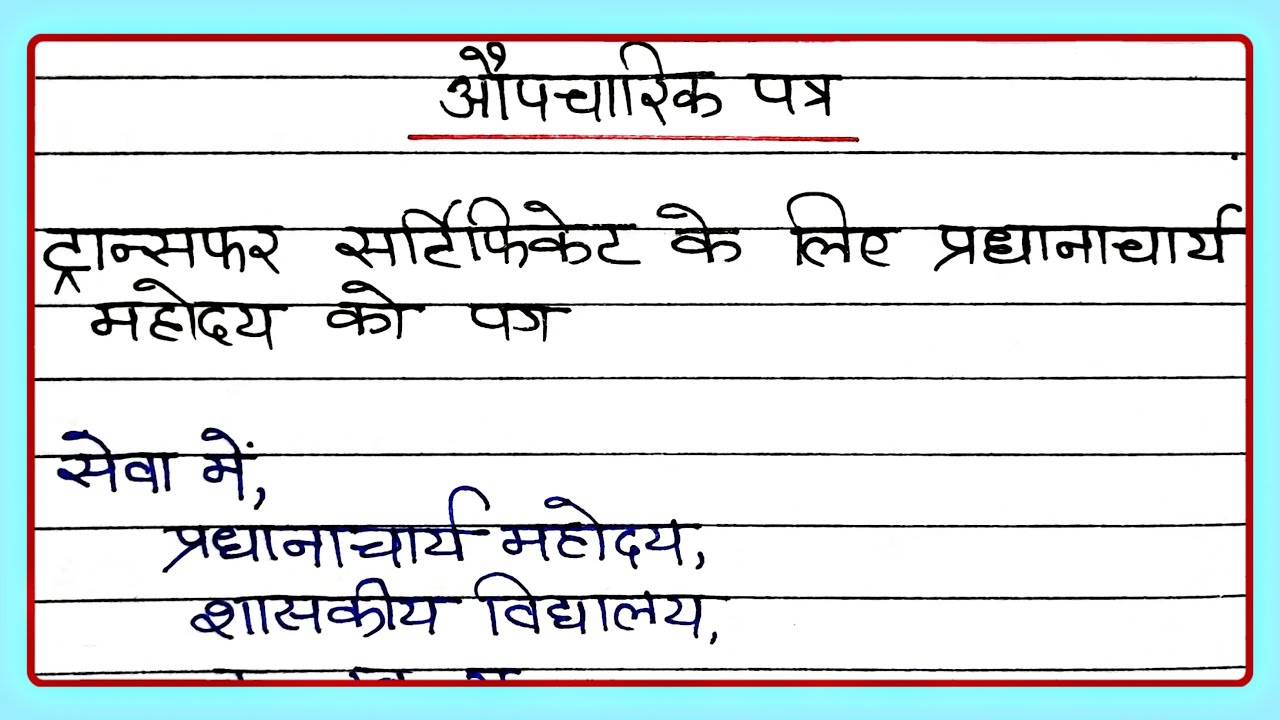 औपचारिक पत्र
ट्रान्सफर सर्टिफिकेट के लिए प्रधानाचार्य
महोदय को पत्र
सेवा में,
प्रधानाचार्य महोदय,
शासकीय विद्यालय,